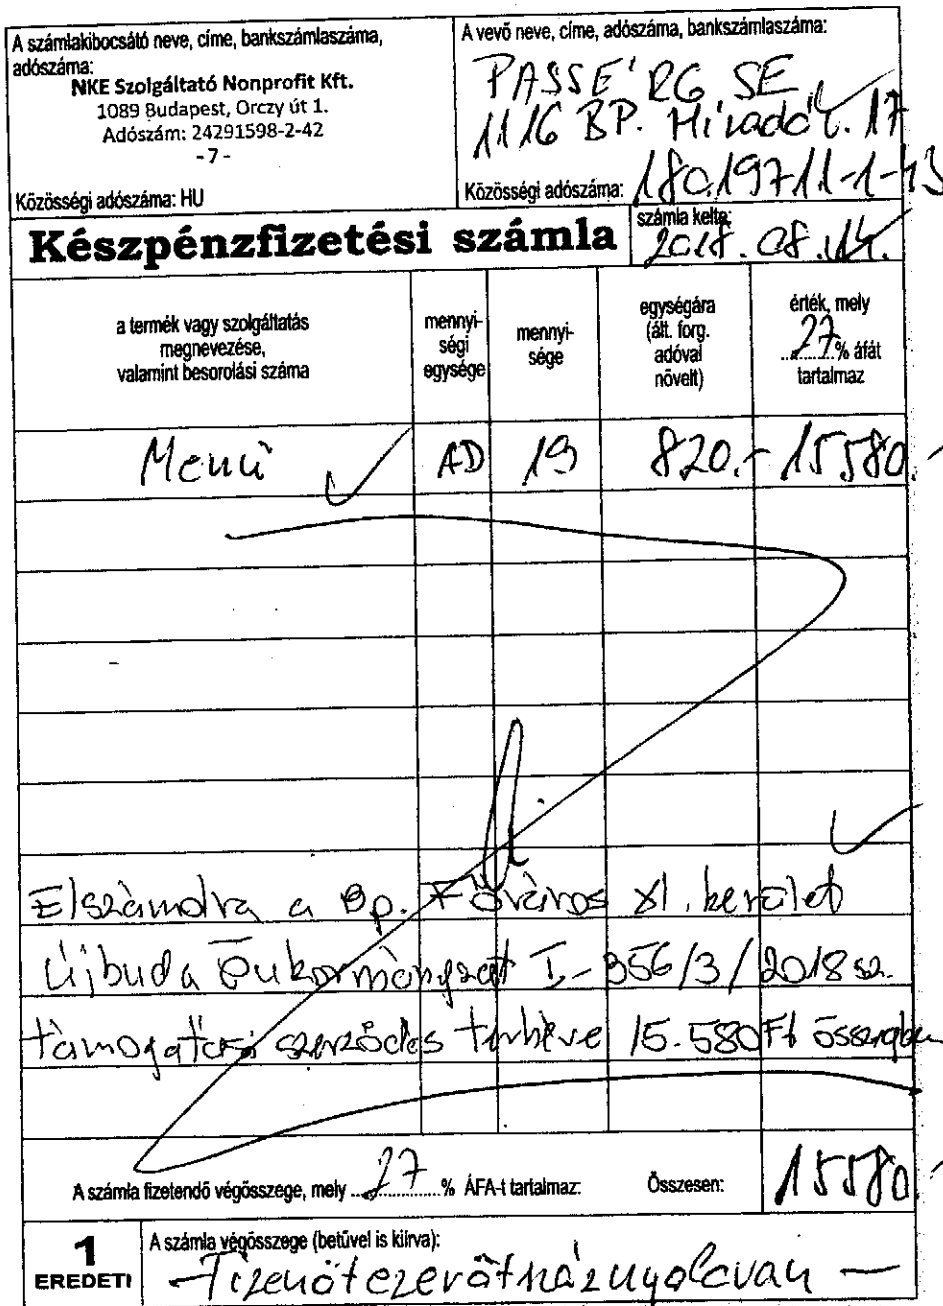 A számlakibocsátó neve, címe, bankszámlaszáma,
adószáma:
NKE Szolgáltató Nonprofit Kft.
1089 Budapest, Orczy út 1.
Adószám: 24291598-2-42
- 7 -
Közösségi adószáma: HU
A vevő neve, címe, adószáma, bankszámlaszáma:
PASSÉ RG SE
1116 BP. Híradó u. 17
Közösségi adószáma: 18019711-1-43
Készpénzfizetési számla
számla kelte:
2018.08.14.
a termék vagy szolgáltatás
megnevezése,
valamint besorolási száma
mennyi-
ségi
egysége
mennyi-
sége
egységára
(ált. forg.
adóval
növelt)
érték, mely
27 % áfát
tartalmaz
Menü AD 19 820.- 15580.-
Elszámolva a Bp. Főváros XI. kerület
Újbuda Önkormányzat I-356/3/2018 sz.
támogatási szerződés terhére 15.580 Ft összegben
A számla fizetendő végösszege, mely 27 % ÁFA-t tartalmaz: Összesen: 15580.-
1
EREDETI
A számla végösszege (betűvel is kiírva):
Tizenötezerötháznyolcvan —